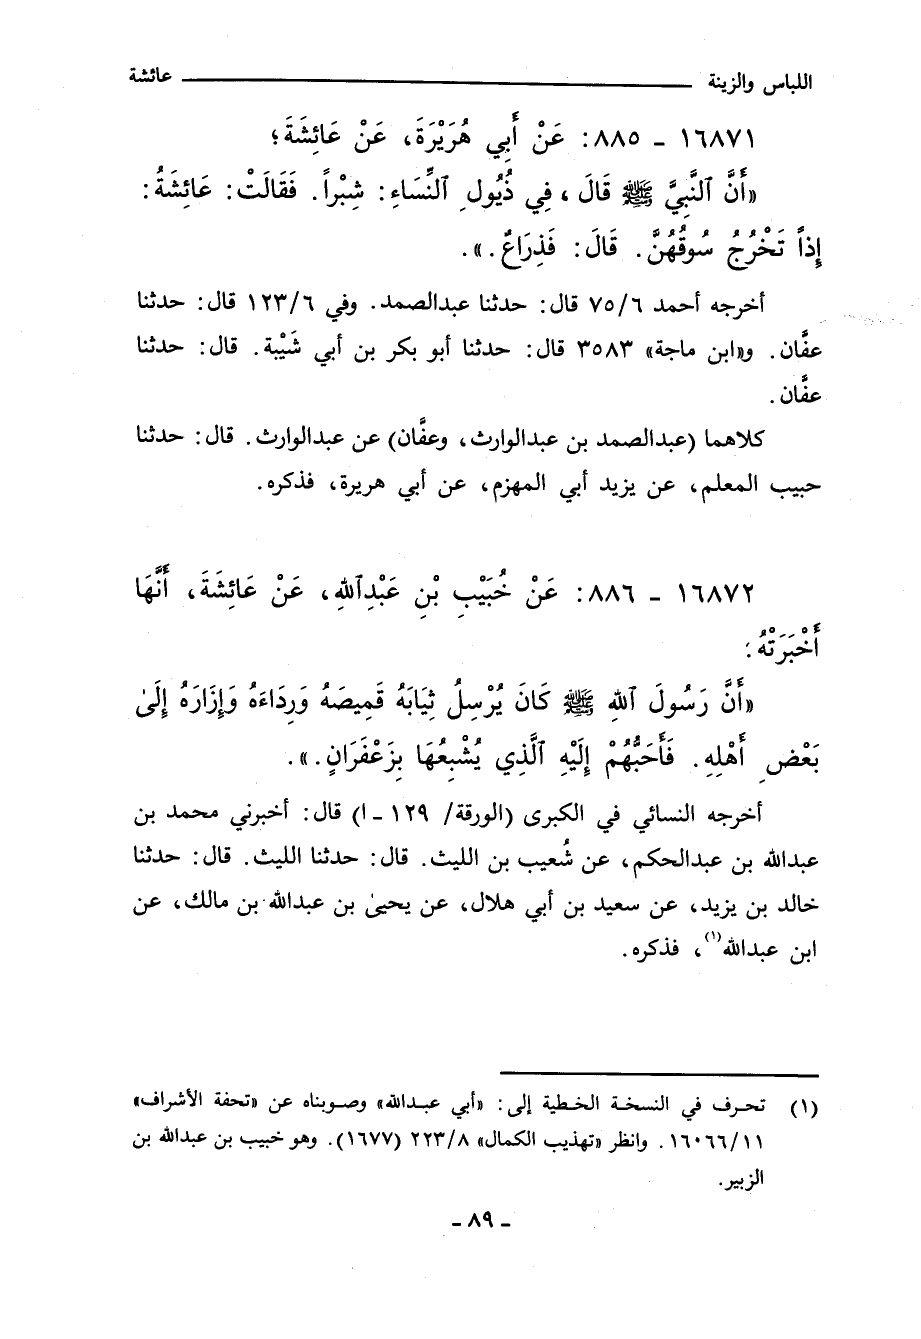 اللباس والزينة ــــــــــــ عائشة
١٦٨٧١ ـ ٨٨٥: عَنْ أَبِي هُرَيْرَةَ، عَنْ عَائِشَةَ؛
«أَنَّ ٱلنَّبِيَّ ﷺ قَالَ، فِي ذُيُولِ ٱلنِّسَاءِ: شِبْراً. فَقَالَتْ: عَائِشَةُ:
إِذاً تَخْرُجُ سُوقُهُنَّ. قَالَ: فَذِرَاعٌ.».
أخرجه أحمد ٧٥/٦ قال: حدثنا عبدالصمد. وفي ١٢٣/٦ قال: حدثنا
عفَّان. و«ابن ماجة» ٣٥٨٣ قال: حدثنا أبو بكر بن أبي شَيْبة. قال: حدثنا
عفَّان.
كلاهما (عبدالصمد بن عبدالوارث، وعفَّان) عن عبدالوارث. قال: حدثنا
حبيب المعلم، عن يزيد أبي المهزم، عن أبي هريرة، فذكره.
١٦٨٧٢ ـ ٨٨٦: عَنْ خُبَيْبِ بْنِ عَبْدِٱللهِ، عَنْ عَائِشَةَ، أَنَّهَا
أَخْبَرَتْهُ؛
«أَنَّ رَسُولَ ٱللهِ ﷺ كَانَ يُرْسِلُ ثِيَابَهُ قَمِيصَهُ وَرِدَاءَهُ وَإِزَارَهُ إِلَىٰ
بَعْضِ أَهْلِهِ. فَأَحَبُّهُمْ إِلَيْهِ ٱلَّذِي يُشْبِعُهَا بِزَعْفَرَانٍ.».
أخرجه النسائي في الكبرى (الورقة/ ١٢٩ ـ ا) قال: أخبرني محمد بن
عبدالله بن عبدالحكم، عن شُعيب بن الليث. قال: حدثنا الليث. قال: حدثنا
خالد بن يزيد، عن سعيد بن أبي هلال، عن يحيىٰ بن عبدالله بن مالك، عن
ابن عبدالله(١)، فذكره.
(١) تحرف في النسخة الخطية إلى: «أبي عبدالله» وصوبناه عن «تحفة الأشراف»
١٦٠٦٦/١١. وانظر «تهذيب الكمال» ٢٢٣/٨ (١٦٧٧). وهو خبيب بن عبدالله بن
الزبير.
ـ ٨٩ ـ